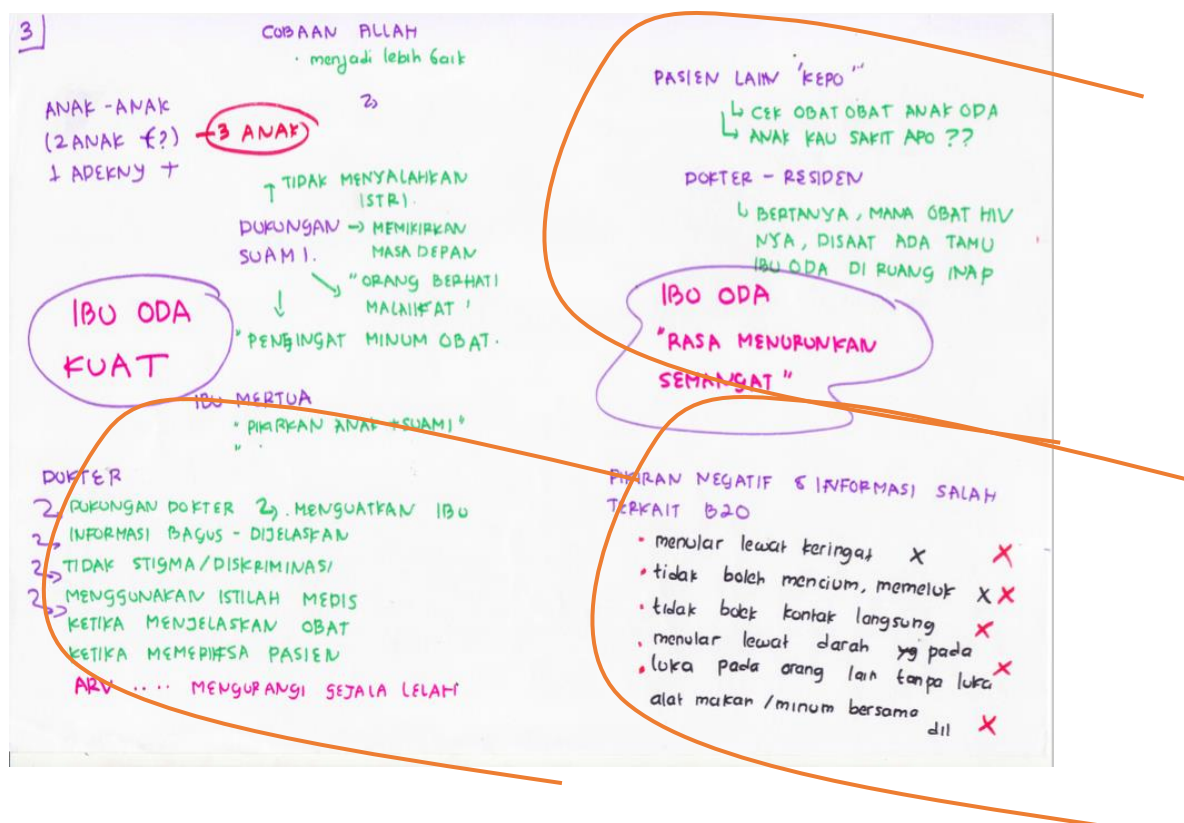 3
COBAAN ALLAH
· menjadi lebih baik
ANAK-ANAK
(2 ANAK (?) - 3 ANAK)
1 ADEKNY +
↑ TIDAK MENYALAHKAN
ISTRI.
DUKUNGAN → MEMIKIRKAN
SUAMI. MASA DEPAN
"ORANG BERHATI
MALAIKAT '
"PENGINGAT MINUM OBAT.
IBU ODA
KUAT
IBU MERTUA
"PIKIRKAN ANAK + SUAMI"
DOKTER
DUKUNGAN DOKTER . MENGUATKAN IBU
INFORMASI BAGUS - DIJELASKAN
TIDAK STIGMA/DISKRIMINASI
MENGGUNAKAN ISTILAH MEDIS
KETIKA MENJELASKAN OBAT
KETIKA MEMERIKSA PASIEN
ARV .... MENGURANGI GEJALA LELAH
PASIEN LAIN "KEPO"
↳ CEK OBAT OBAT ANAK ODA
↳ ANAK KAU SAKIT APO ??
DOKTER - RESIDEN
↳ BERTANYA, MANA OBAT HIV
NYA, DISAAT ADA TAMU
IBU ODA DI RUANG INAP
IBU ODA
"RASA MENURUNKAN
SEMANGAT"
PIKIRAN NEGATIF & INFORMASI SALAH
TERKAIT B20
• menular lewat keringat X X
• tidak boleh mencium, memeluk X X
• tidak boleh kontak langsung X
• menular lewat darah yg pada
• luka pada orang lain tanpa luka X
alat makan /minum bersama
dll X